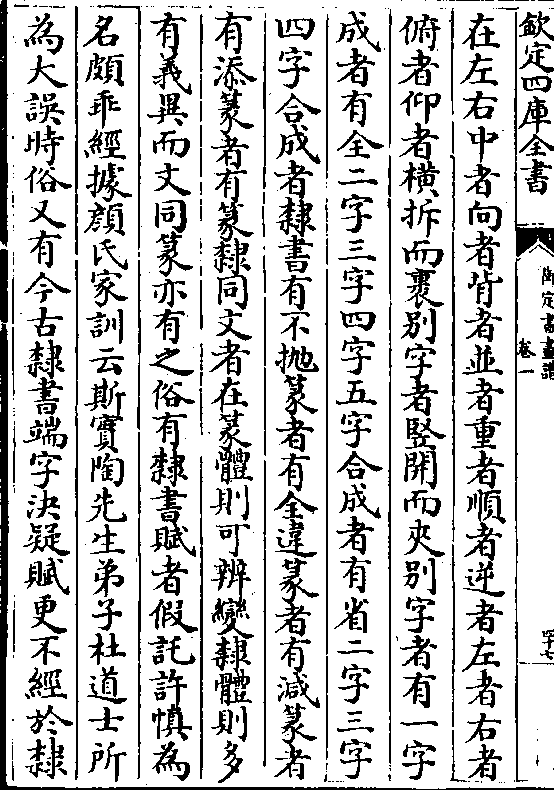 欽定四庫全書
御定書畫譜
卷一
在左右中者向者背者並者重者順者逆者左者右者
俯者仰者橫拆而裹别字者竪開而夾别字者有一字
成者有全二字三字四字五字合成者有省二字三字
四字合成者隸書有不抛篆者有全違篆者有減篆者
有添篆者有篆隸同文者在篆體則可辨變隸體則多
有義異而文同篆亦有之俗有隸書賦者假託許慎為
名頗乖經據顔氏家訓云斯實陶先生弟子杜道士所
為大誤時俗又有今古隸書端字決疑賦更不經於隸